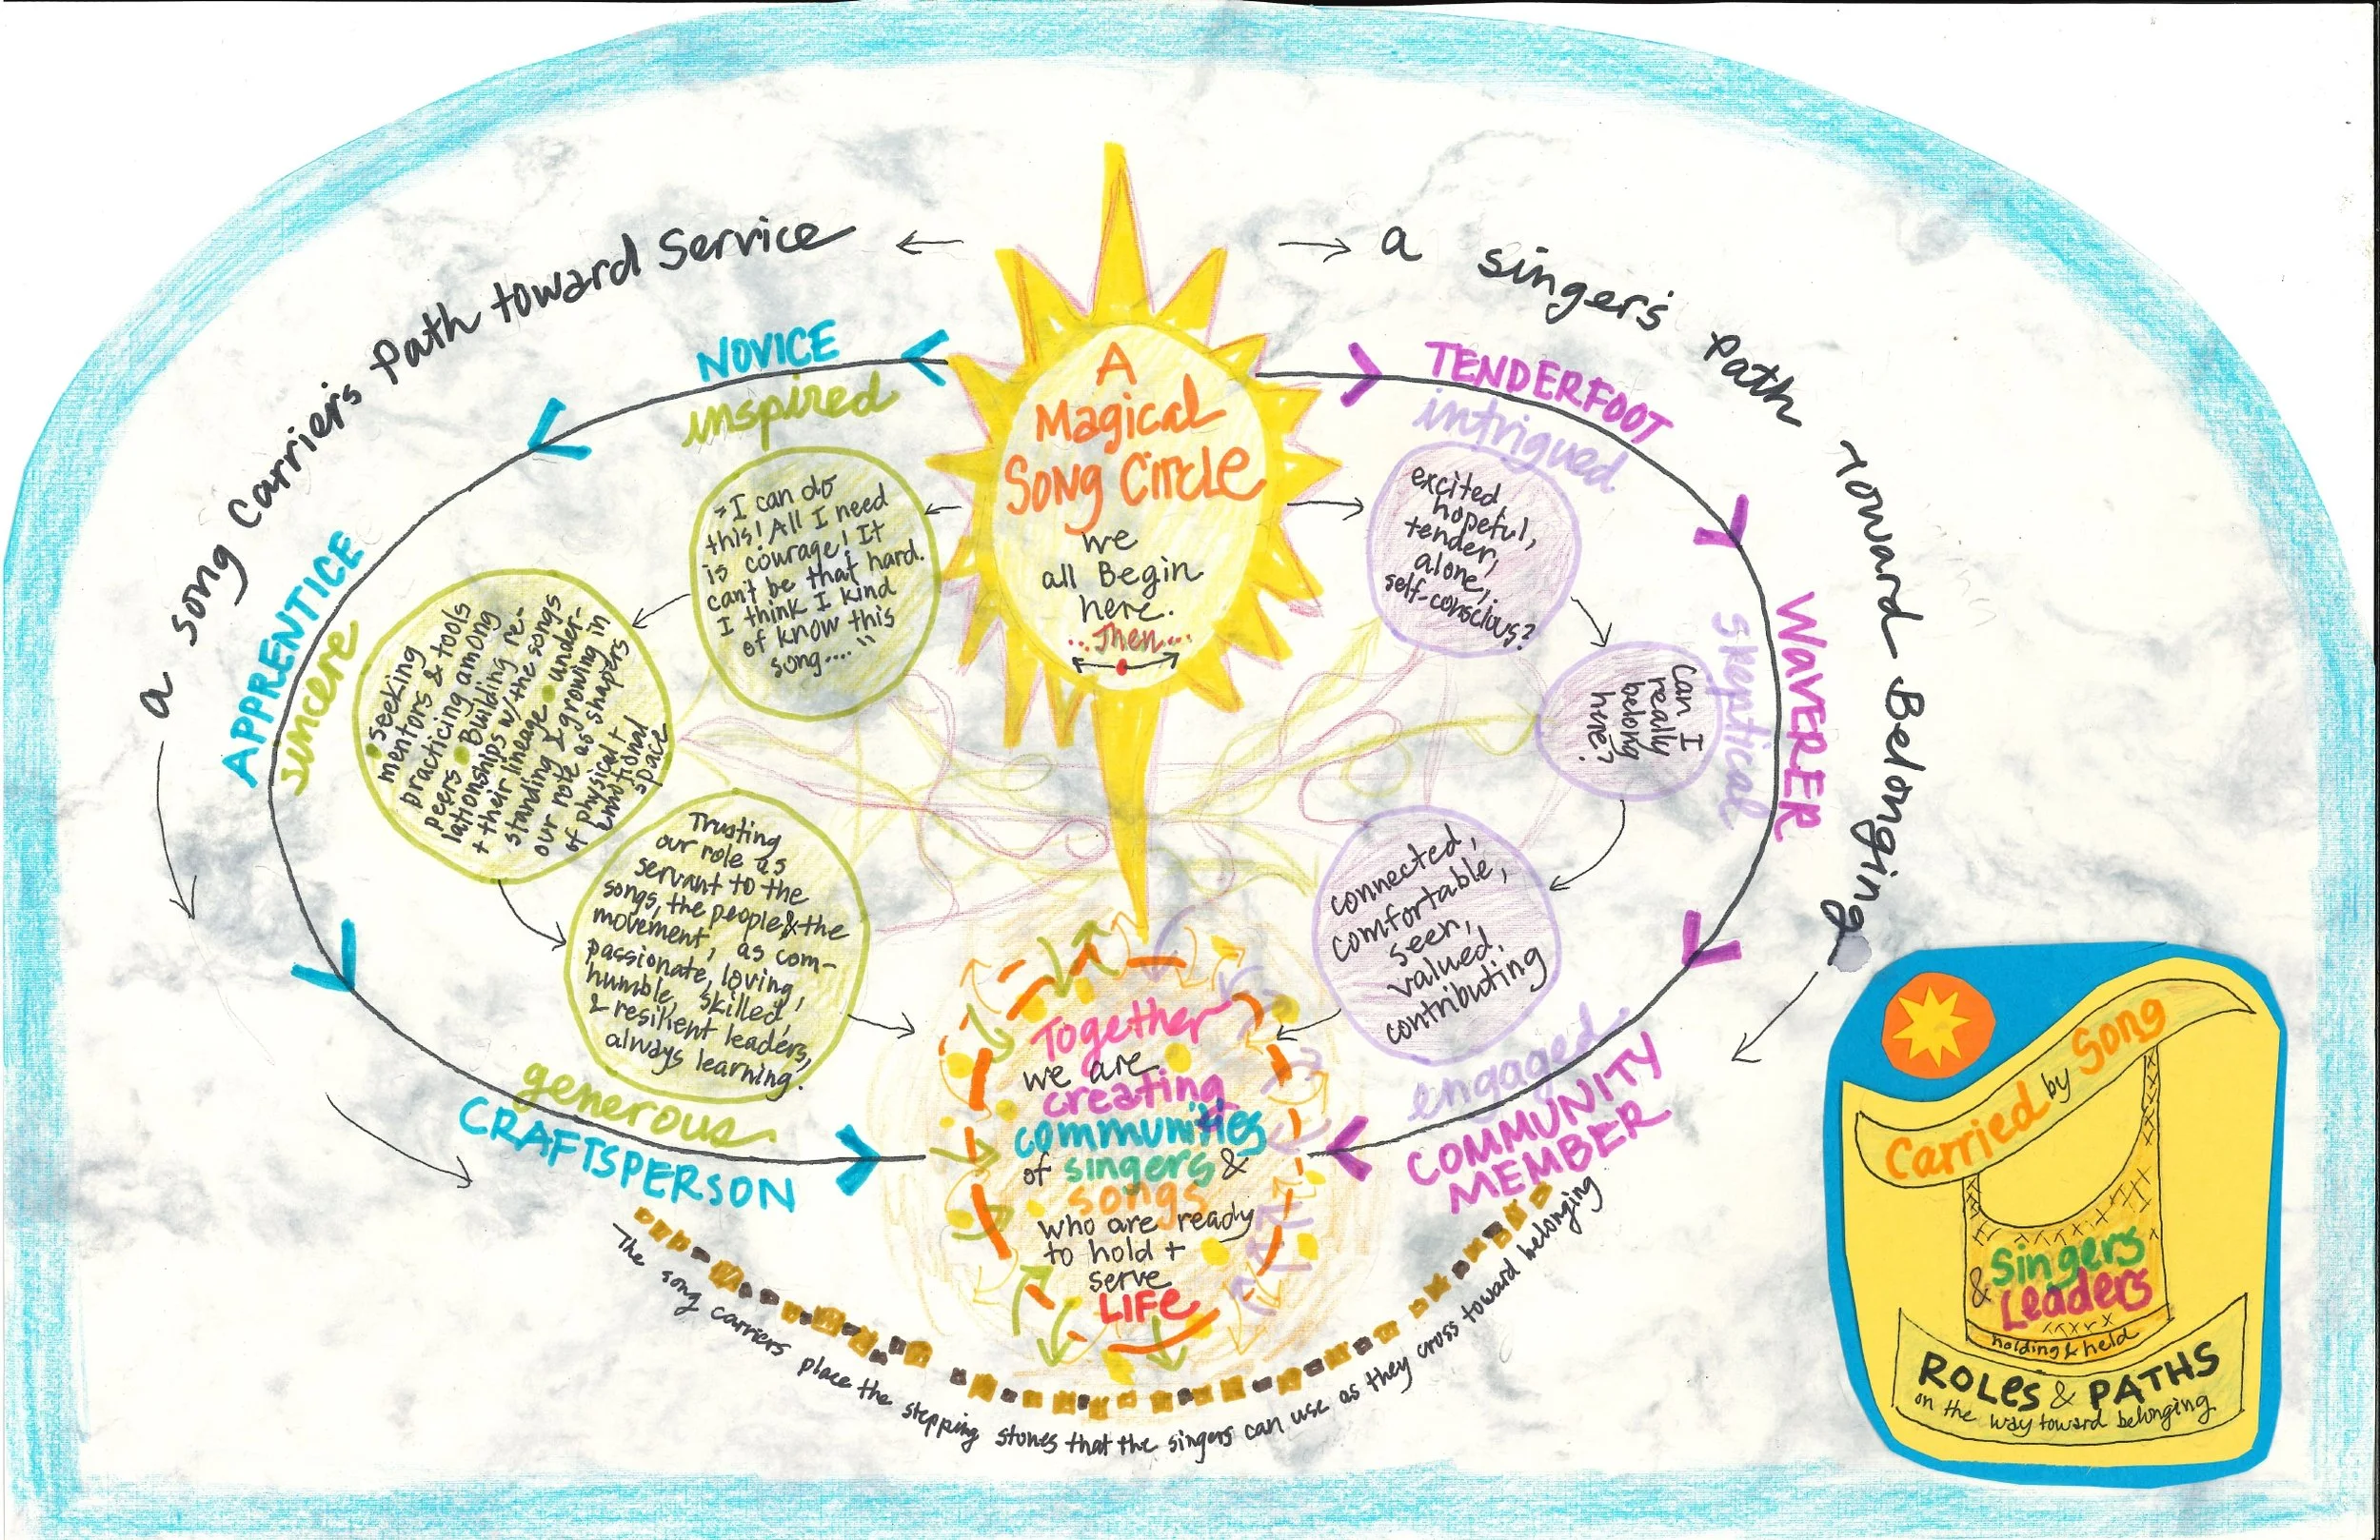 a song Carriers Path toward Service
a singer's Path Toward Belonging
A
Magical
Song Circle
we
all Begin
here.
...Then...
NOVICE
inspired
"I can do
this! All I need
is courage! It
can't be that hard.
I think I kind
of know this
song...."
APPRENTICE
sincere
• Seeking
mentors & tools
practicing among
peers • Building re-
lationships w/the songs
+ their lineage • under-
standing & growing in
our role as shapers
of physical +
emotional
space
Trusting
our role as
servant to the
songs, the people & the
movement, as com-
passionate, loving,
humble, skilled,
& resilient leaders,
always learning.
generous
CRAFTSPERSON
TENDERFOOT
intrigued
excited
hopeful,
tender,
alone,
self-conscious?
WAVERER
skeptical
Can I
really
belong
here?
connected,
comfortable,
seen,
valued,
contributing
engaged
COMMUNITY
MEMBER
Together
we are
creating
communities
of singers &
songs
who are ready
to hold +
serve
LIFE
The song carriers place the stepping stones that the singers can use as they cross toward belonging
Carried by Song
Singers
& Leaders
holding & held
ROLES & PATHS
on the way toward belonging